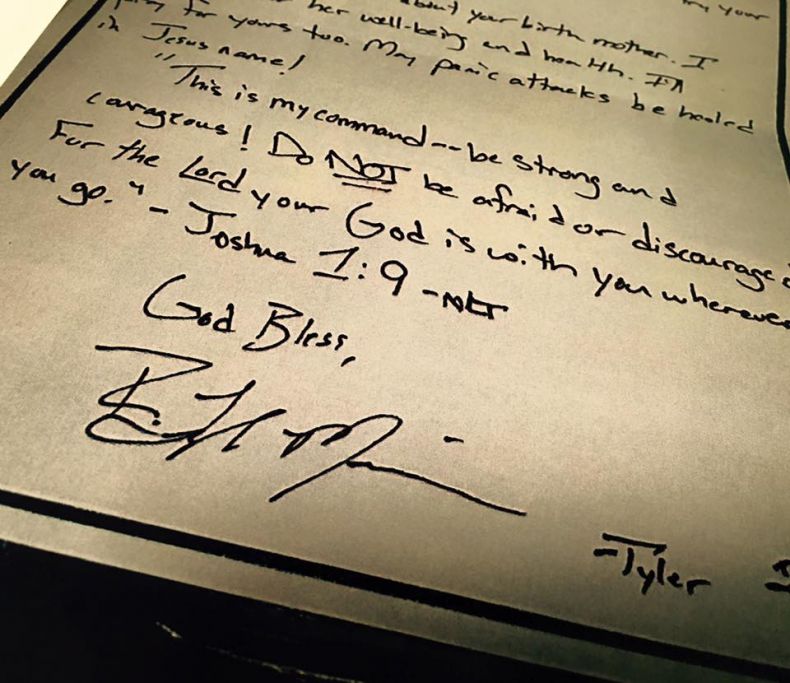 my your
about your birth mother. I
for her well-being and health. I'm
for yours too. May panic attacks be healed
in Jesus name!
"This is my command -- be strong and
courageous! Do NOT be afraid or discouraged
For the Lord your God is with you wherever
you go." - Joshua 1:9 - NLT
God Bless,
-Tyler